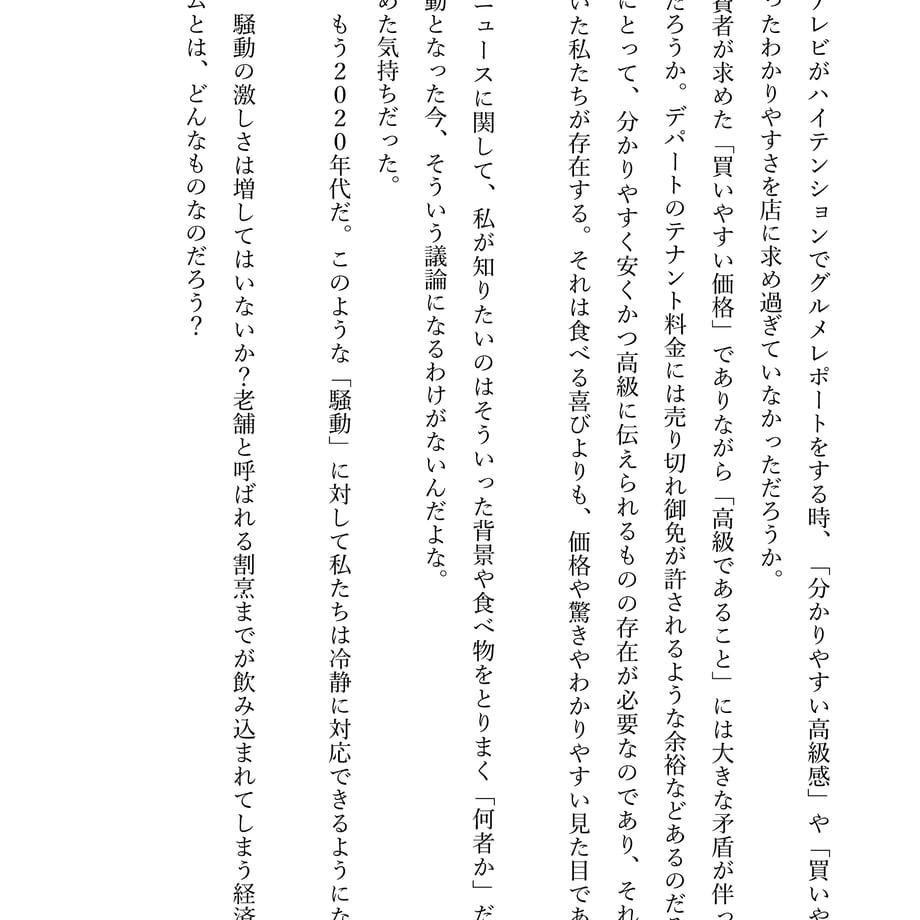 テレビがハイテンションでグルメレポートをする時、「分かりやすい高級感」や「買いや
ったわかりやすさを店に求め過ぎていなかっただろうか。
費者が求めた「買いやすい価格」でありながら「高級であること」には大きな矛盾が伴っ
だろうか。デパートのテナント料金には売り切れ御免が許されるような余裕などあるのだろ
にとって、分かりやすく安くかつ高級に伝えられるものの存在が必要なのであり、それ
いた私たちが存在する。それは食べる喜びよりも、価格や驚きやわかりやすい見た目であ
ニュースに関して、私が知りたいのはそういった背景や食べ物をとりまく「何者か」だ
動となった今、そういう議論になるわけがないんだよな。
めた気持ちだった。
もう２０２０年代だ。このような「騒動」に対して私たちは冷静に対応できるようにな
騒動の激しさは増してはいないか？老舗と呼ばれる割烹までが飲み込まれてしまう経済
ムとは、どんなものなのだろう？